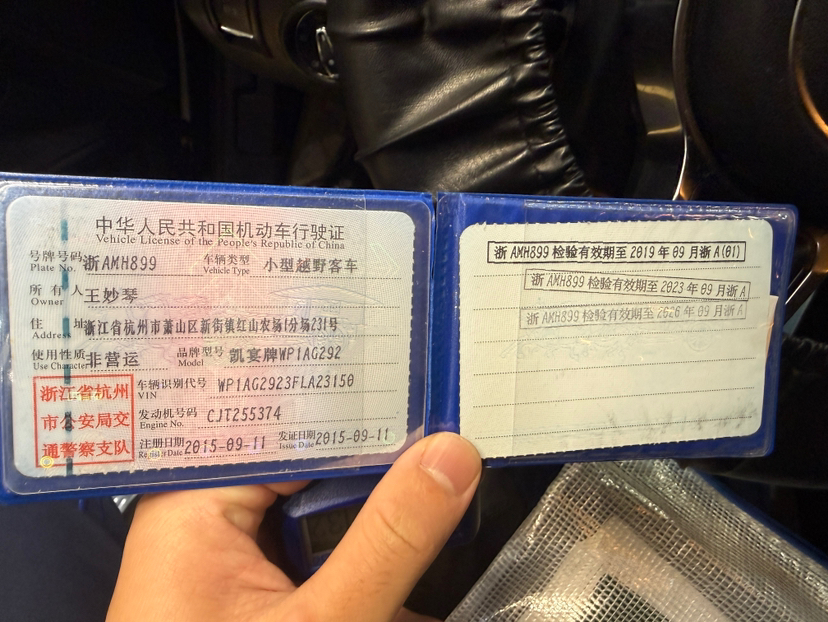 中华人民共和国机动车行驶证
Vehicle License of the People's Republic of China
号牌号码 浙AMH899 车辆类型 小型越野客车
Plate No. Vehicle Type
所有人 王妙琴
Owner
住址 浙江省杭州市萧山区新街镇红山农场1分场231号
Address
使用性质 非营运 品牌型号 凯宴牌WP1AG292
Use Character Model
浙江省杭州
市公安局交
通警察支队
车辆识别代号 WP1AG2923FLA23150
VIN
发动机号码 CJT255374
Engine No.
注册日期 2015-09-11 发证日期 2015-09-11
Register Date Issue Date
浙AMH899检验有效期至2019年09月浙A(01)
浙AMH899检验有效期至2023年09月浙A
浙AMH899检验有效期至2026年09月浙A